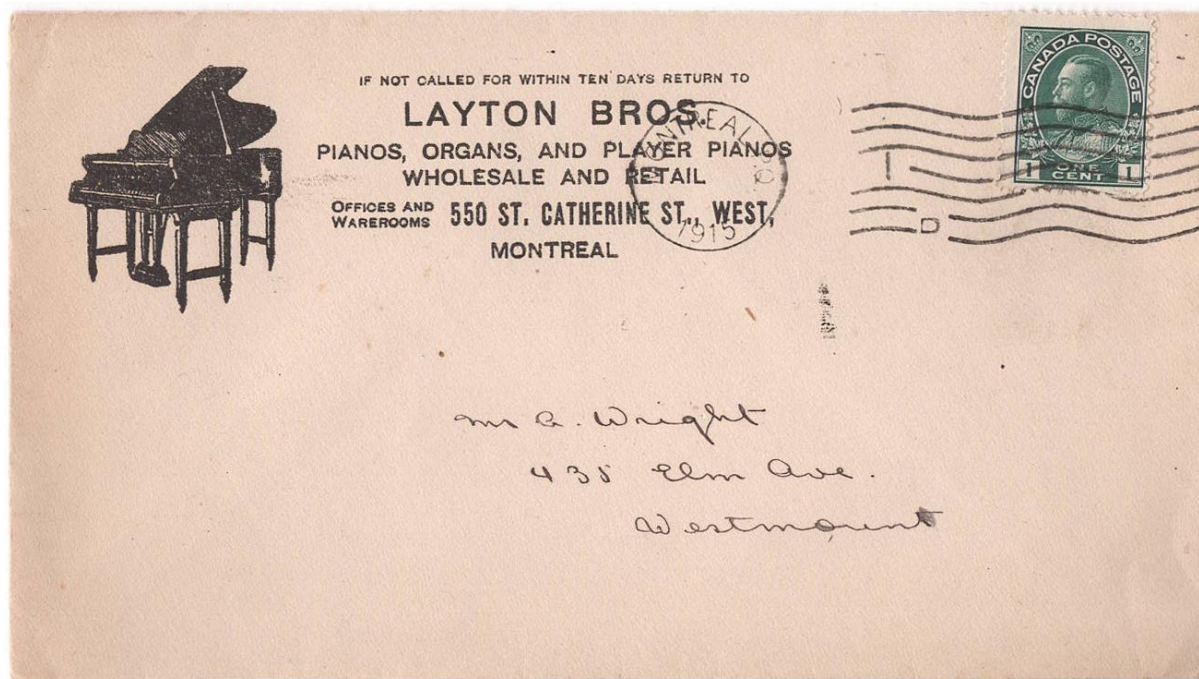 IF NOT CALLED FOR WITHIN TEN DAYS RETURN TO
LAYTON BROS.
PIANOS, ORGANS, AND PLAYER PIANOS
WHOLESALE AND RETAIL
OFFICES AND WAREROOMS 550 ST. CATHERINE ST., WEST,
MONTREAL
MONTREAL
1915
CANADA POSTAGE
1 ONE CENT 1
I
D
Mr A. Wright
435 Elm Ave.
Westmount